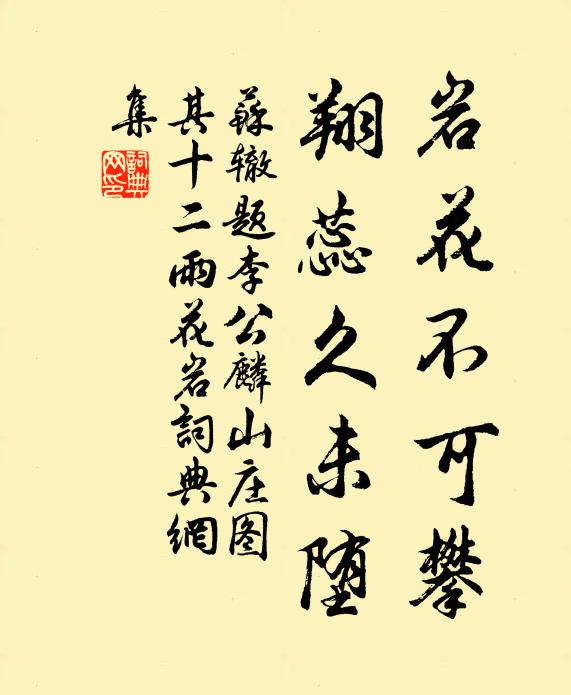 岩花不可攀
翔蕊久未堕
蘇辙题李公麟山庄图
其十二雨花岩詞典網
集
詞典
网印